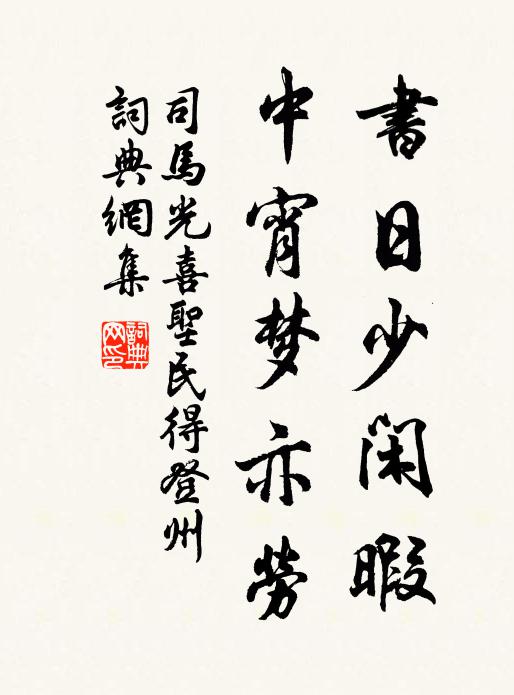 書日少閑暇
中宵梦亦勞
司馬光喜聖民得登州
詞典網集
詞典网印